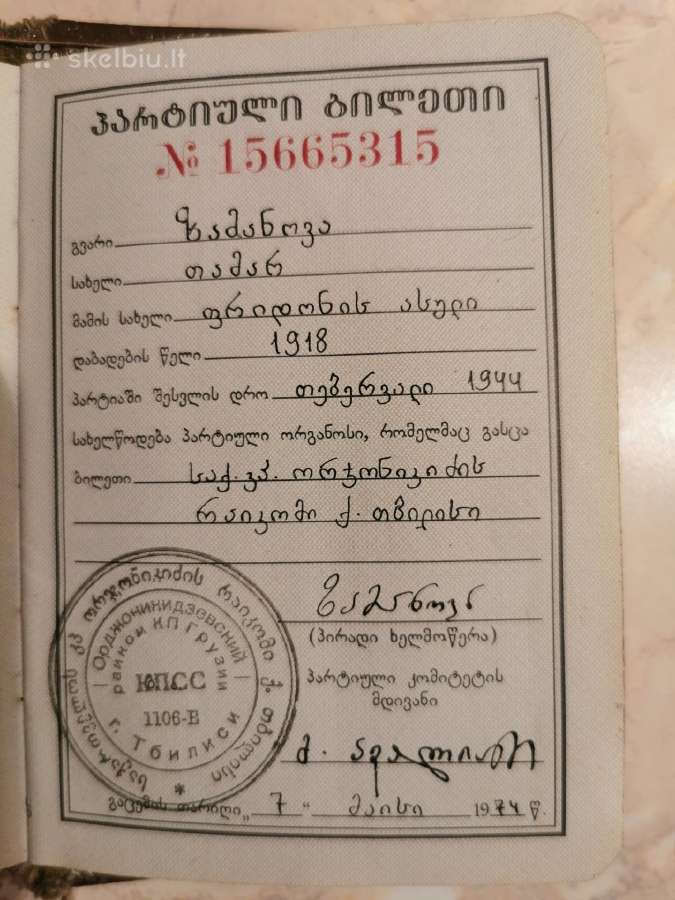 skelbiu.lt
პარტიული ბილეთი
№ 15665315
გვარი ზამანოვა
სახელი თამარ
მამის სახელი ფრიდონის ასული
დაბადების წელი 1918
პარტიაში შესვლის დრო თებერვალი 1944
სახელწოდება პარტიული ორგანოსი, რომელმაც გასცა
ბილეთი საქ. კპ. ორჯონიკიძის
რაიკომი ქ. თბილისი
(პირადი ხელმოწერა)
პარტიული კომიტეტის
მდივანი
საქართველოს კპ ორჯონიკიძის რაიკომი ქ. თბილისი
Орджоникидзевский
райком КП Грузии
КПСС
1106-В
г. Тбилиси
გაცემის თარიღი „ 7 “ მაისი 1974 წ.